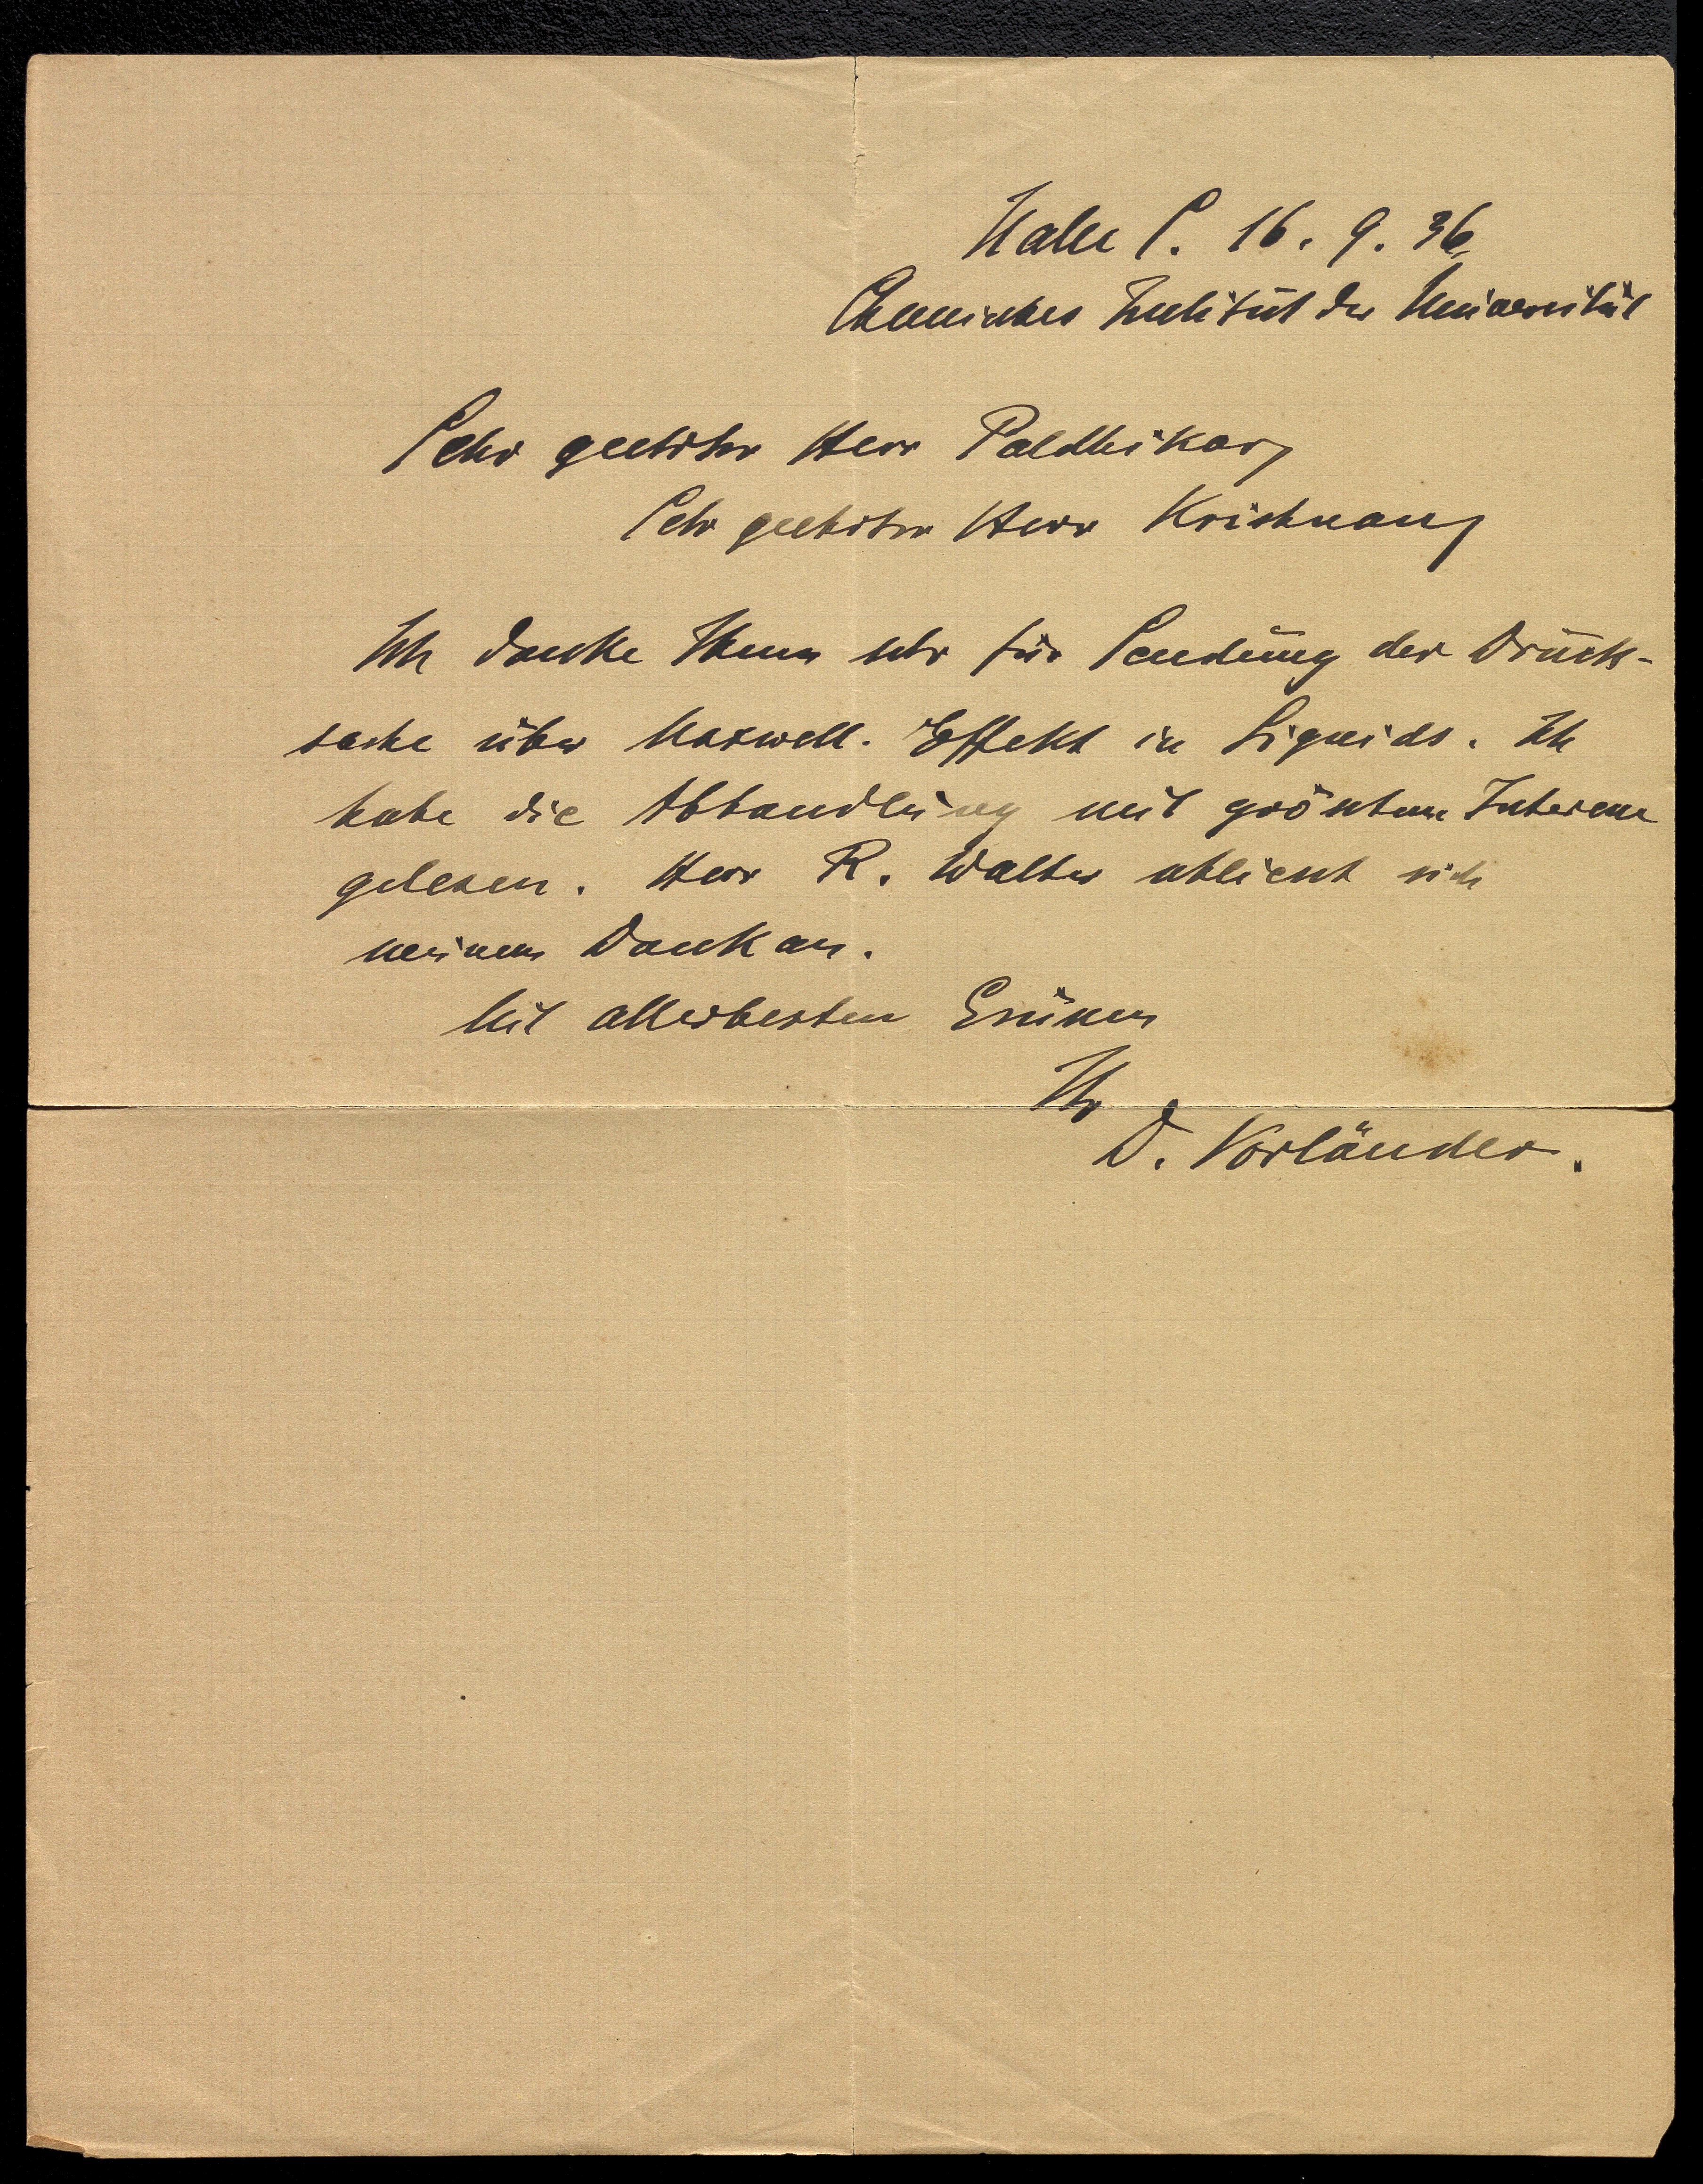 Halle S. 16. 9. 36.
Chemisches Institut der Universität
Sehr geehrter Herr Paldhikar,
Sehr geehrter Herr Krishnan,
Ich danke Ihnen sehr für Sendung der Druck-
sache über Maxwell. Effekt in Liquids. Ich
habe die Abhandlung mit grösstem Interesse
gelesen. Herr R. Walter schliesst sich
meinem Dank an.
Mit allerbesten Grüssen
Ihr
D. Vorländer.